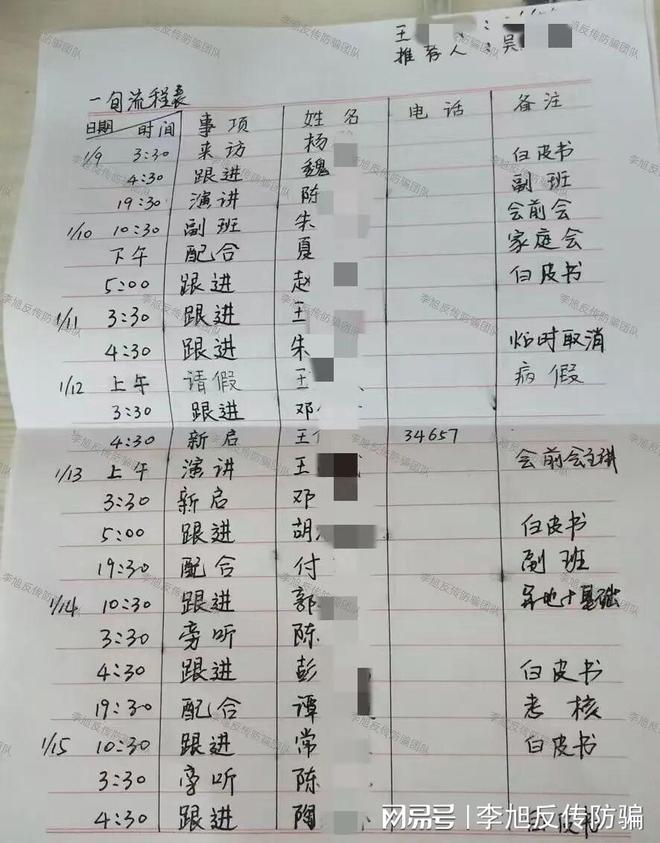 王 :
推荐人 : 吴
一旬流程表
日期 时间 事项 姓名 电话 备注
1/9 3:30 来访 杨 白皮书
4:30 跟进 魏 副班
19:30 演讲 陈 会前会
1/10 10:30 副班 朱 家庭会
下午 配合 夏
5:00 跟进 赵 白皮书
1/11 3:30 跟进 王
4:30 跟进 朱 临时取消
1/12 上午 请假 王 病假
3:30 跟进 邓
4:30 新启 王 34657
1/13 上午 演讲 王 会前会主讲
3:30 新启 邓
5:00 跟进 胡 白皮书
19:30 配合 付 副班
1/14 10:30 跟进 郭 异地+基础
3:30 旁听 陈
4:30 跟进 彭 白皮书
19:30 配合 谭 考核
1/15 10:30 跟进 常 白皮书
3:30 旁听 陈
4:30 跟进 陶
网易号 | 李旭反传防骗
李旭反传防骗团队